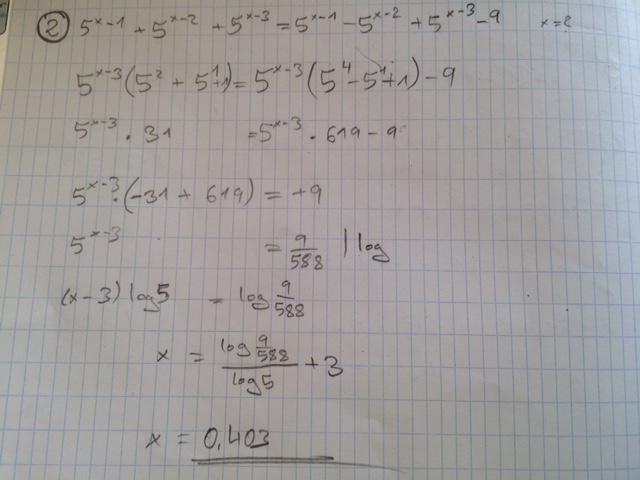 ② 5^x-1 + 5^x-2 + 5^x-3 = 5^x-1 - 5^x-2 + 5^x-3 - 9 x=?
5^x-3 (5^2 + 5^1 + 1) = 5^x-3 (5^4 - 5^1 + 1) - 9
5^x-3 · 31 = 5^x-3 · 619 - 9
5^x-3 · (-31 + 619) = +9
5^x-3 = 9/588 | log
(x-3) log5 = log 9/588
x = log 9/588 / log 5 + 3
x = 0,403